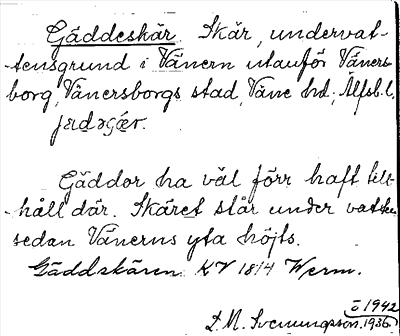 Gäddeskär. Skär, undervat-
tensgrund i Vänern utanför Väners-
borg, Vänersborgs stad, Väne hd, Älfsb. l.
Gäddor ha väl förr haft till-
håll där. Skäret står under vatten
sedan Vänerns yta höjts.
Gäddskären KV 1814 Werm.
ö 1942
L. M. Svenungsson. 1936